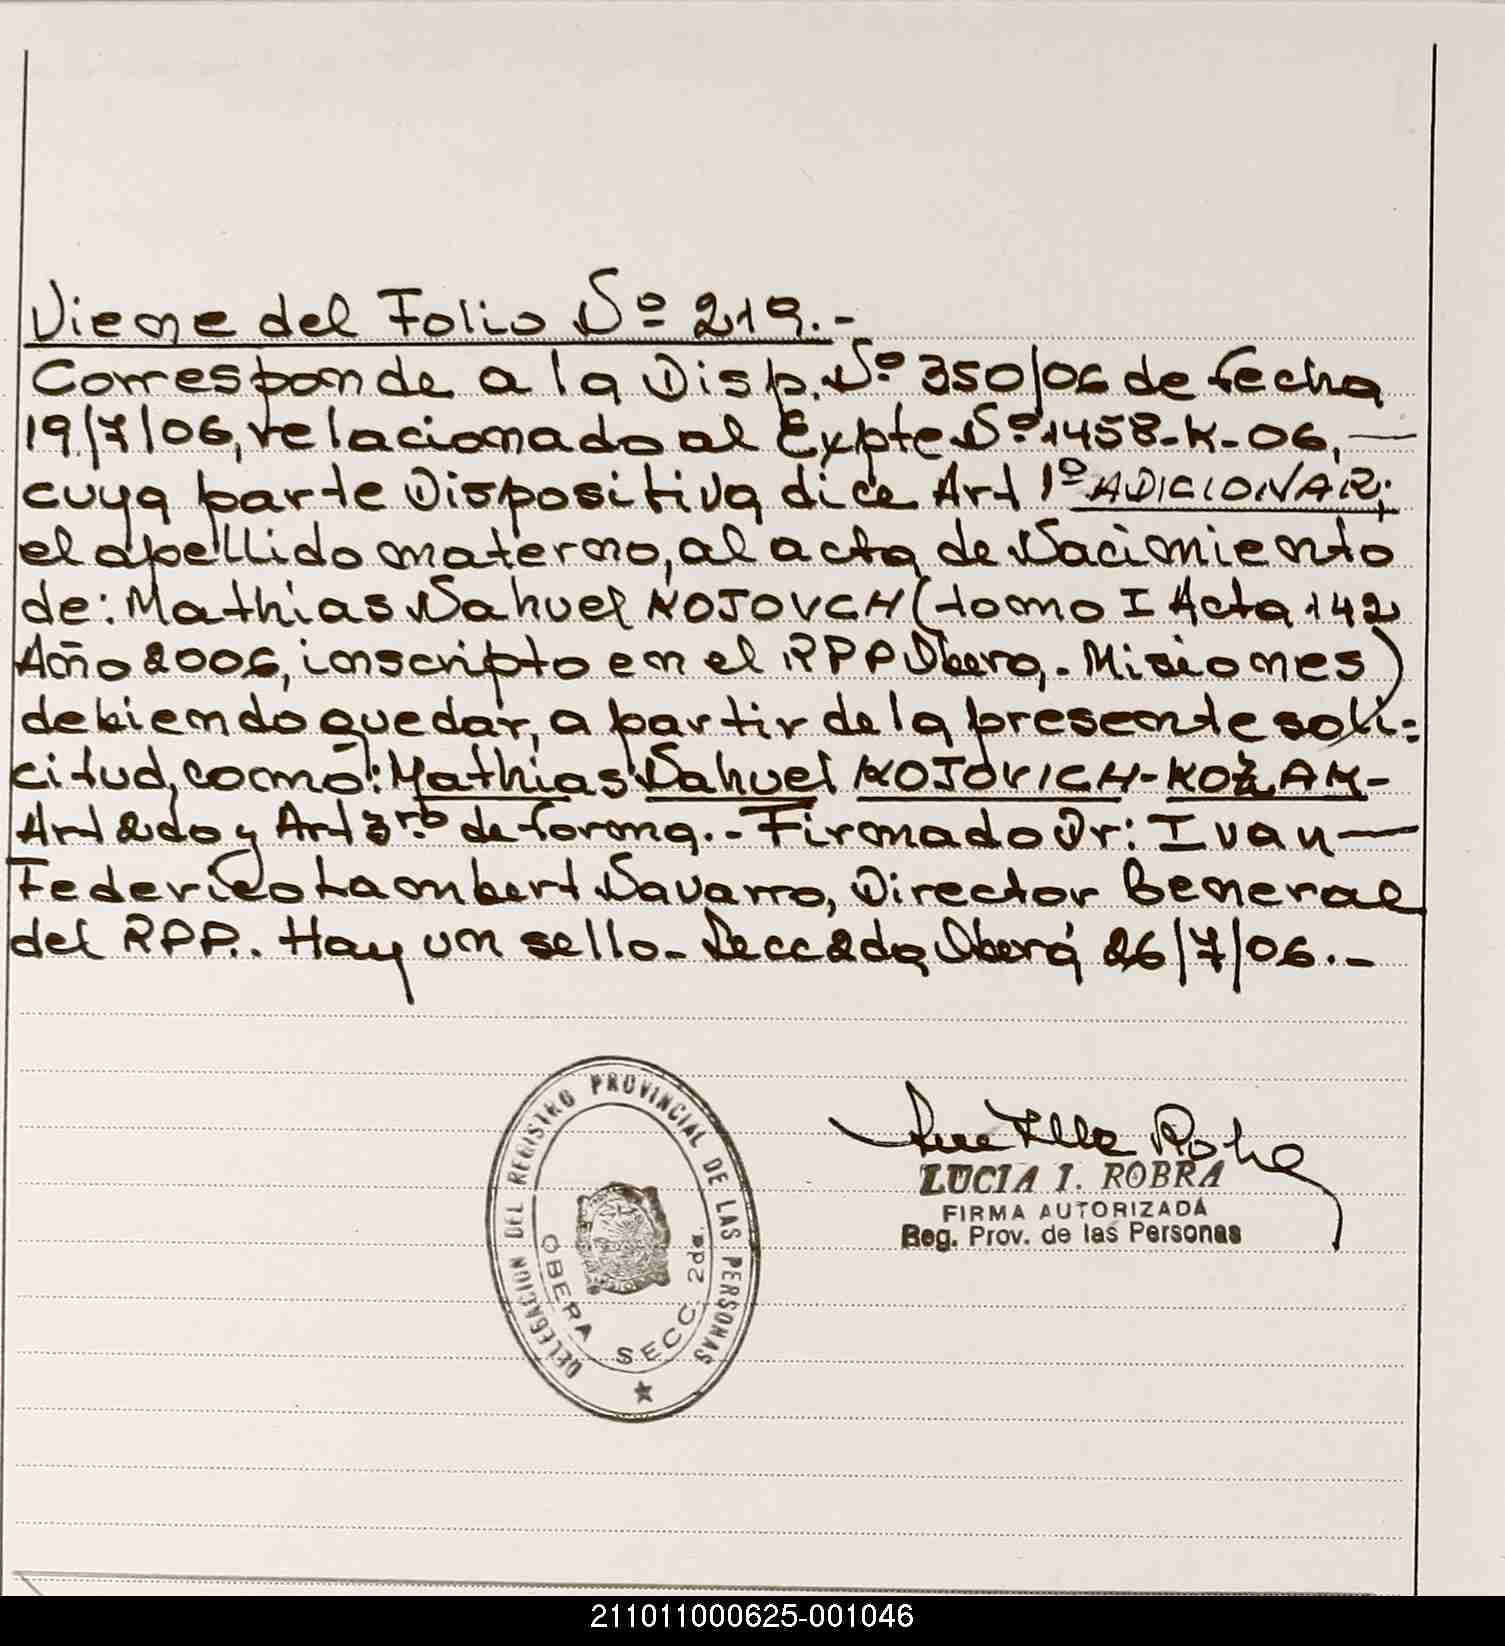 Viene del Folio Nº 219.-
Corresponde a la Disp. Nº 350/06 de fecha
19/7/06, relacionado al Expte Nº 1458-K-06,—
cuya parte Dispositiva dice Art 1º ADICIONAR;
el apellido materno, al acta de Nacimiento
de: Mathias Nahuel KOJOVCH (tomo I Acta 142
Año 2006, inscripto en el RPP Oberá,. Misiones)
debiendo quedar, a partir de la presente soli=
citud, como: Mathias Nahuel KOJOVICH-KOZAK-
Art 2do y Art 3ro de forma..- Firmado Dr: Ivan—
Federico Lambert Navarro, Director General
del RPP.. Hay un sello.- Secc 2da Oberá 26/7/06.-
DELEGACION DEL REGISTRO PROVINCIAL DE LAS PERSONAS
OBERA SECC. 2da.
LUCIA I. ROBRA
FIRMA AUTORIZADA
Reg. Prov. de las Personas
211011000625-001046